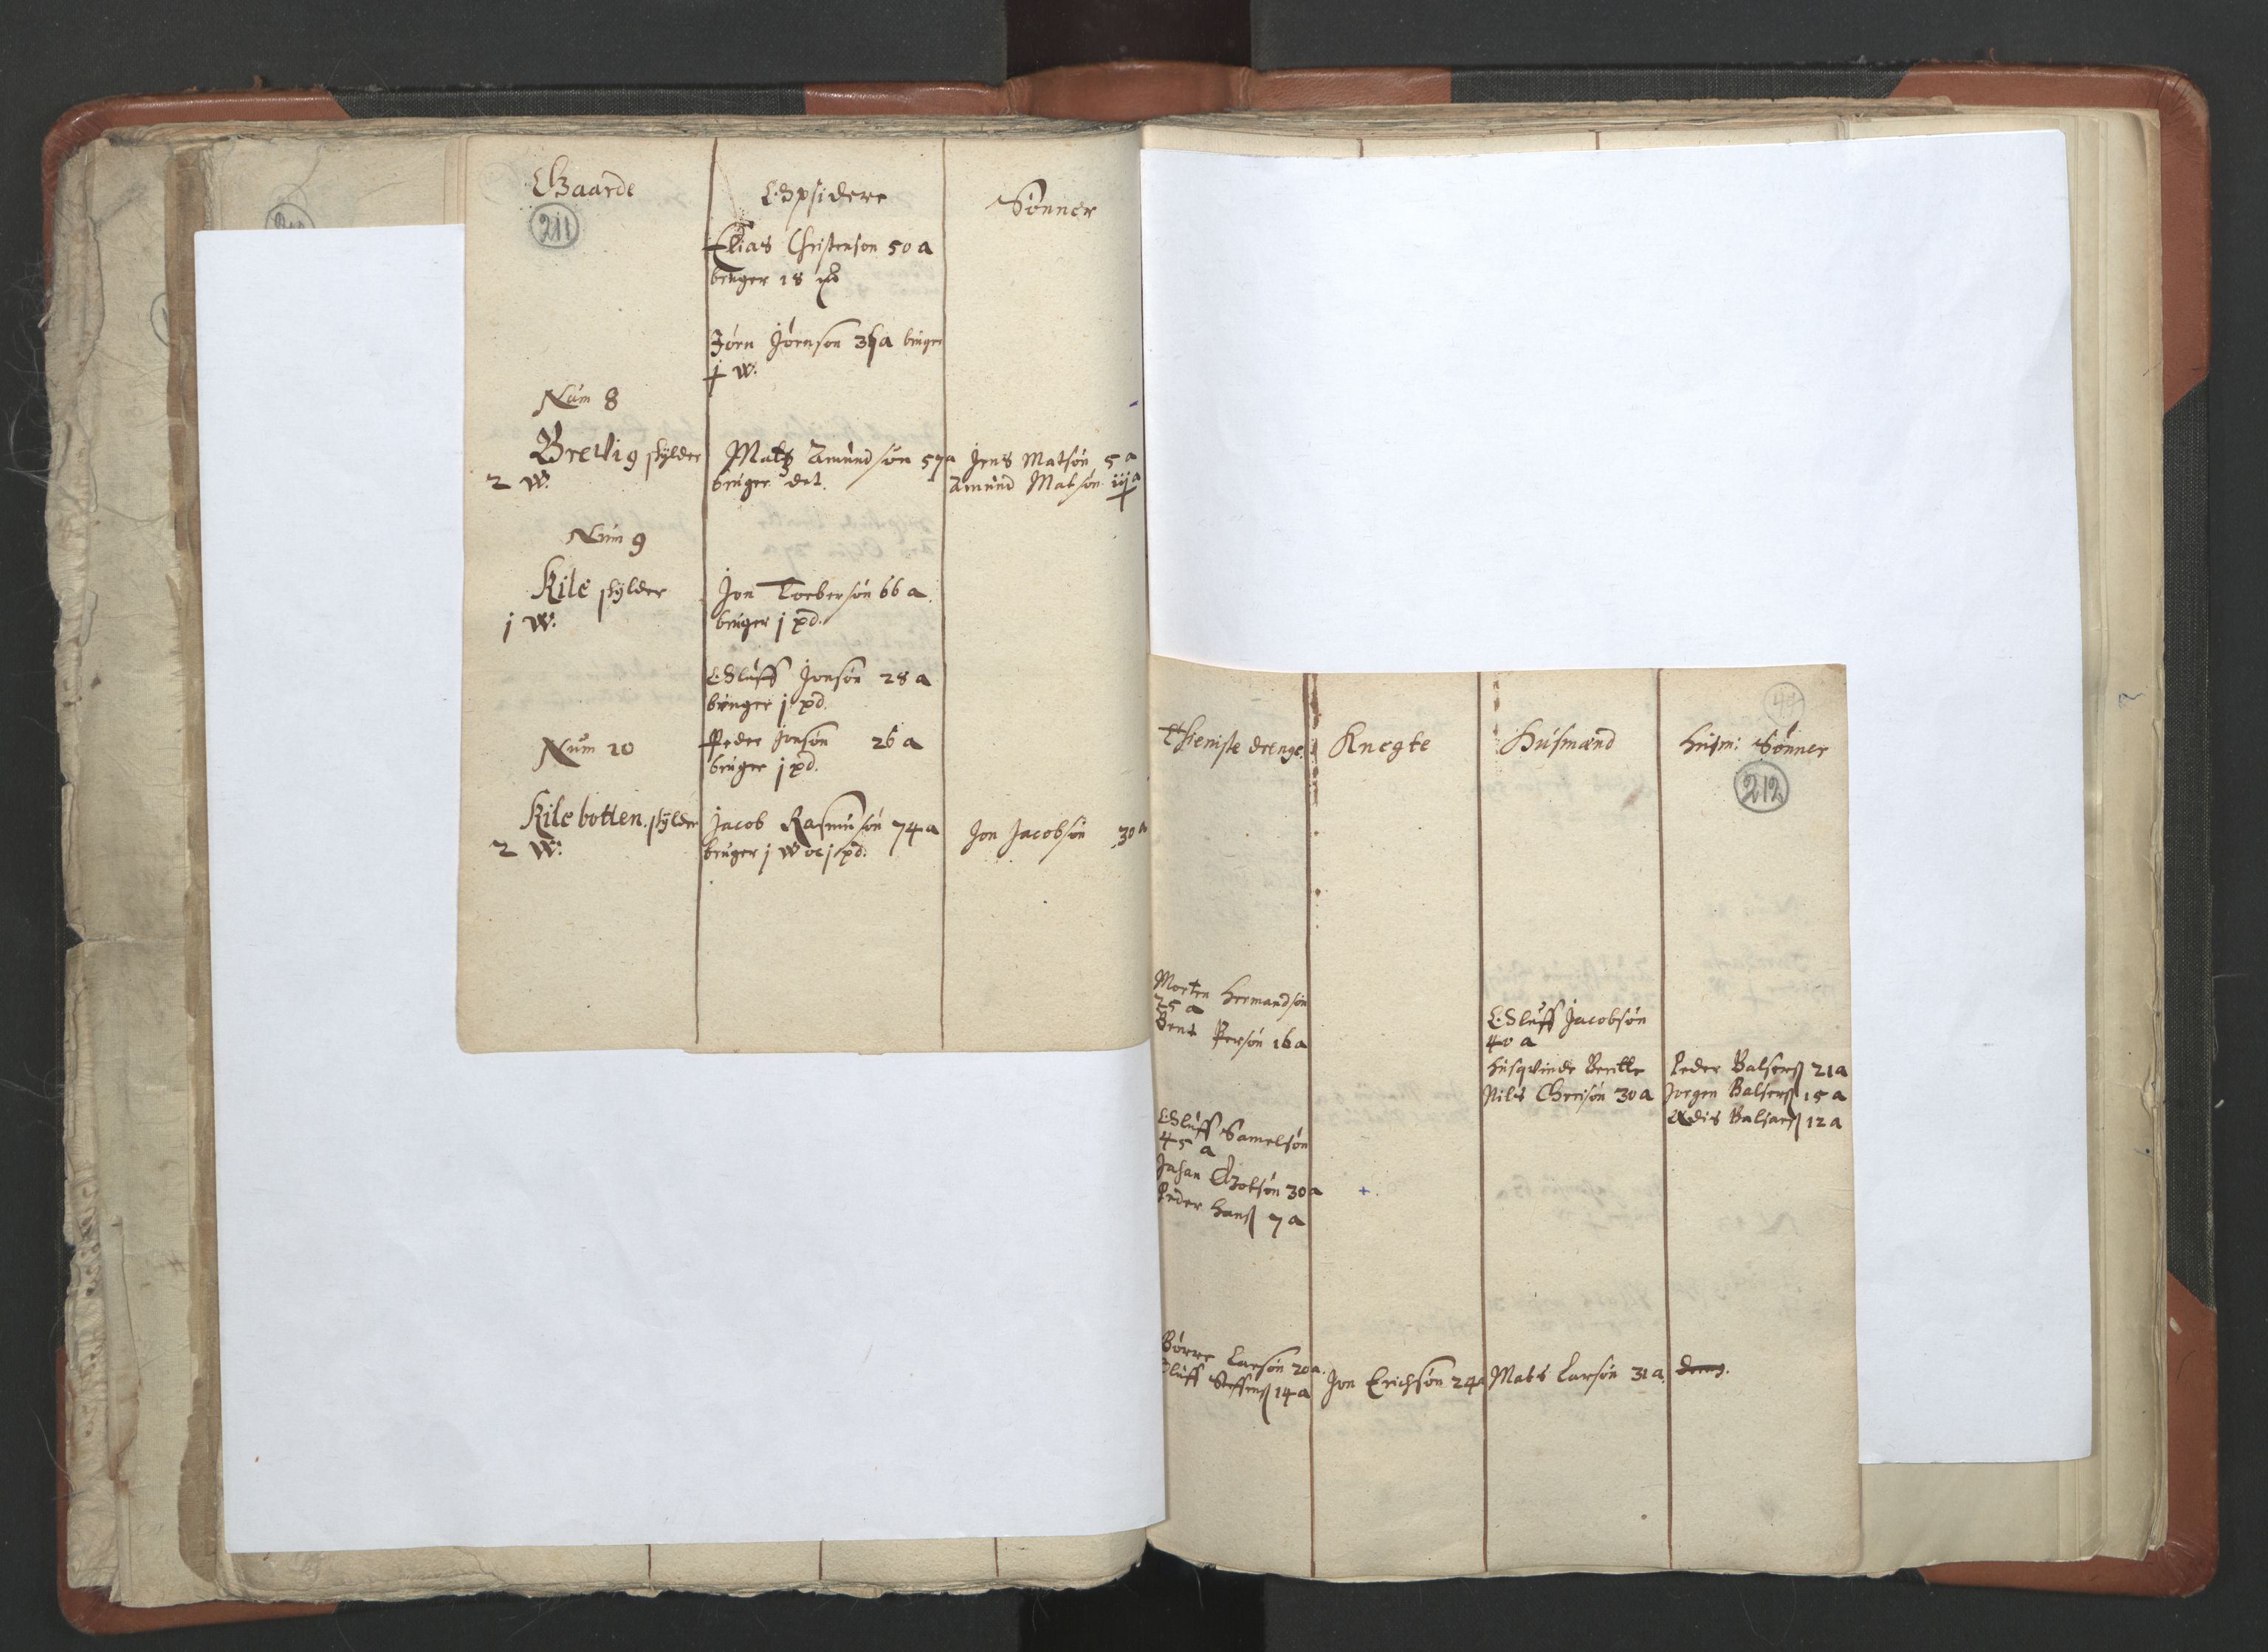 Gaarde
211
Opsidere
Sønner
Elias Christenson 50 a
bruger 18
Jørn Jørnson a bruger
j W:
Num 8
Brevig skylder
2 W.
Mats Amundsøn 57 a
bruger det.
Jens Matsøn 5 a
Amund Matsøn iij a
Num 9
Kile skylder
j W:
Jon Torbersøn 66 a.
bruger j pd.
Oluff Jonsøn 28 a
bruger j pd.
Num 10
Peder Jonsøn 26 a
bruger j pd.
Kile botten skylder
2 W:
Jacob Rasmusøn 74 a
bruger j W oc j pd:
Jon Jacobsøn 30 a
49
Thieniste drenge
Knegte
Husmænd
Husm: Sønner
212
Morten Hermandsøn
25 a
Bent Persøn 16 a
Oluff Jacobsøn
40 a
Husqvinde Beritte
Nils Chrisøn 30 a
Peder Balsers 21 a
Jørgen Balsers 15 a
Balsars 12 a
Oluff Samelsøn
45 a
Johan Olsøn 30 a
Peder Hans 7 a
Børre Larsøn 20 a.
Oluff Steffens 14 a
Jon Erichsøn 24 a
Mats Larsøn 31 a.